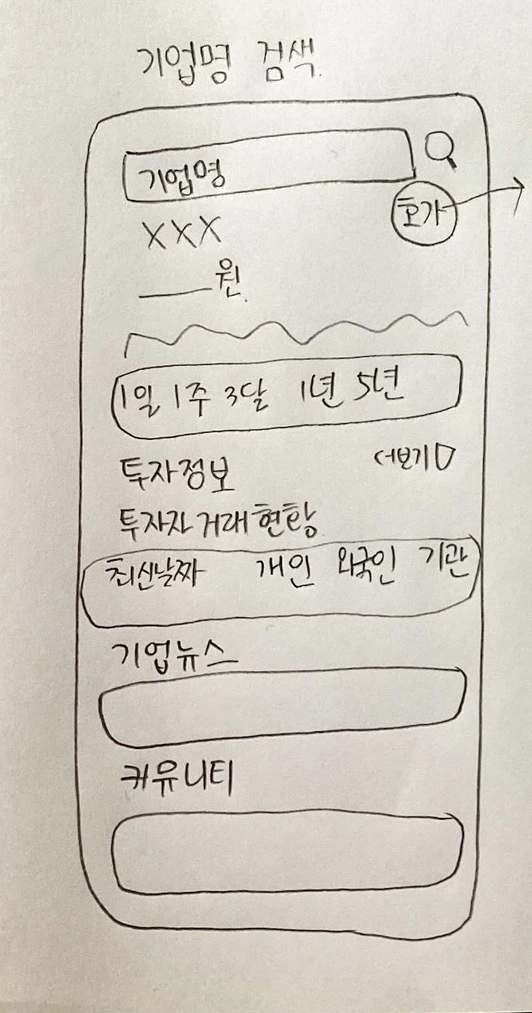 기업명 검색
기업명
XXX 호가
____원
1일 1주 3달 1년 5년
투자정보 더보기
투자자 거래 현황
최신날짜 개인 외국인 기관
기업뉴스
커뮤니티